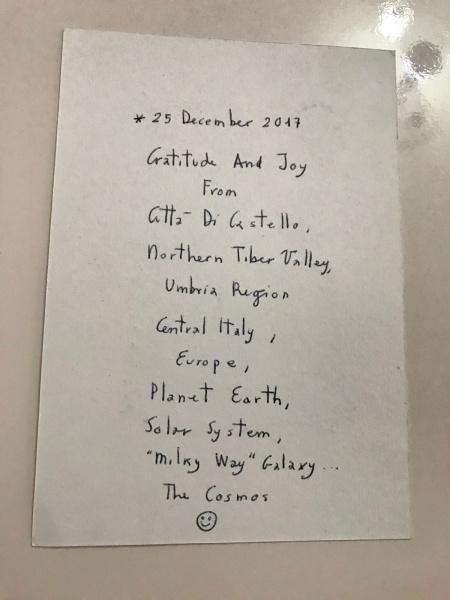 * 25 December 2017
Gratitude And Joy
From
Citta- Di Castello,
Northern Tiber Valley,
Umbria Region
Central Italy,
Europe,
Planet Earth,
Solar System,
"Milky Way" Galaxy...
The Cosmos